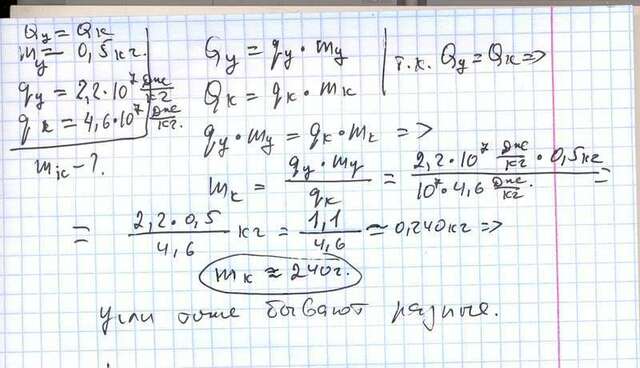 Qу = Qк
mу = 0,5 кг.
qу = 2,2·10⁷ Дж/кг
qк = 4,6·10⁷ Дж/кг.
mк - ?
Qу = qу · mу
Qк = qк · mк
т.к. Qу = Qк =>
qу · mу = qк · mк =>
mк = qу · mу / qк = 2,2·10⁷ Дж/кг · 0,5 кг / 10⁷·4,6 Дж/кг. =
= 2,2·0,5 / 4,6 кг = 1,1 / 4,6 ≈ 0,240 кг =>
mк ≈ 240 г.
угли тоже бывают разные.